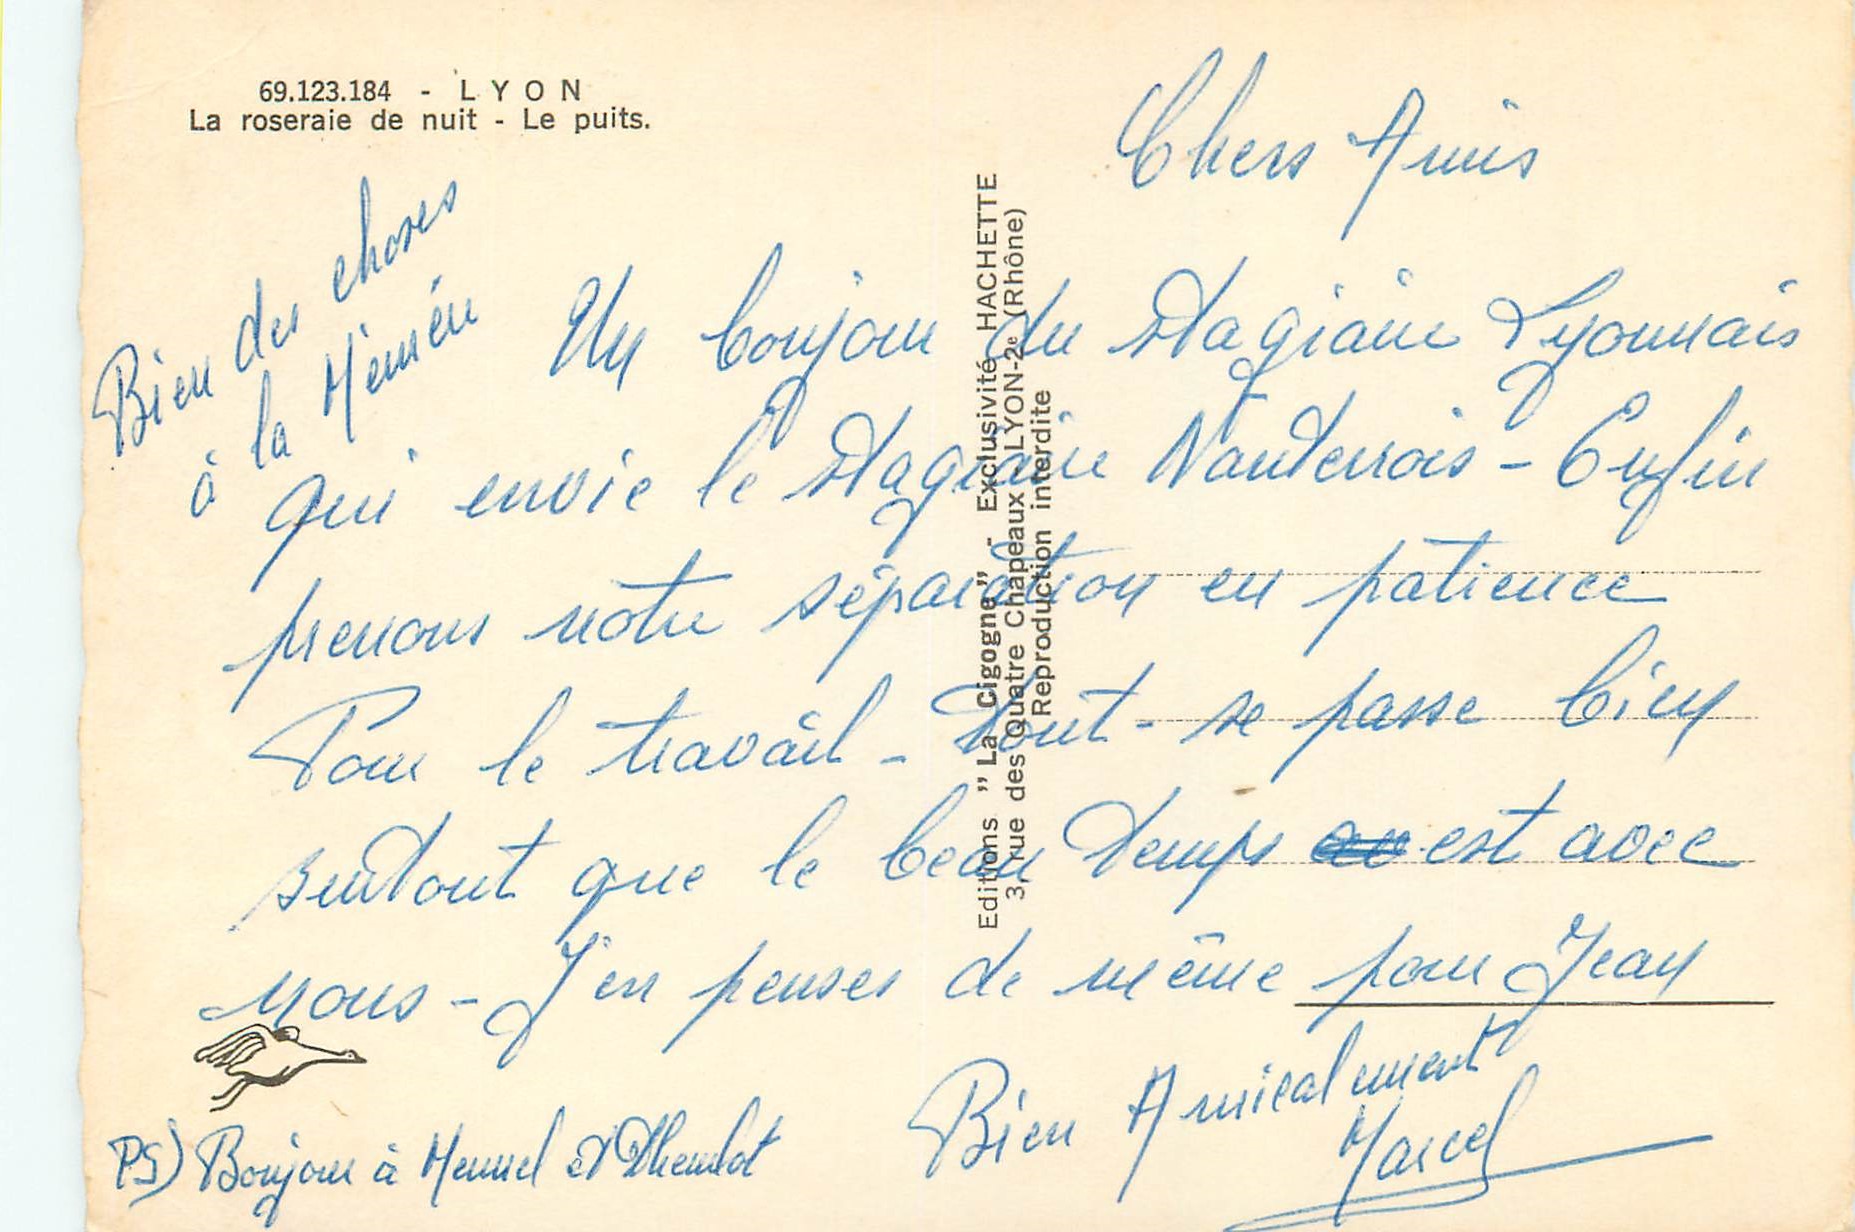 69.123.184 - LYON
La roseraie de nuit - Le puits.
Chers Amis
Bien des choses
à la Mémée
Un bonjour du stagiaire Lyonnais
qui envie le stagiaire Nanterrois - Enfin
prenons notre séparation en patience
Pour le travail - tout - se passe bien
surtout que le beau temps est avec
nous - J'en penses de même pour Jean
Bien Amicalement
Marcel
PS) Bonjour à et
Editions "La Cigogne" - Exclusivité HACHETTE
3, rue des Quatre Chapeaux LYON-2e (Rhône)
Reproduction interdite